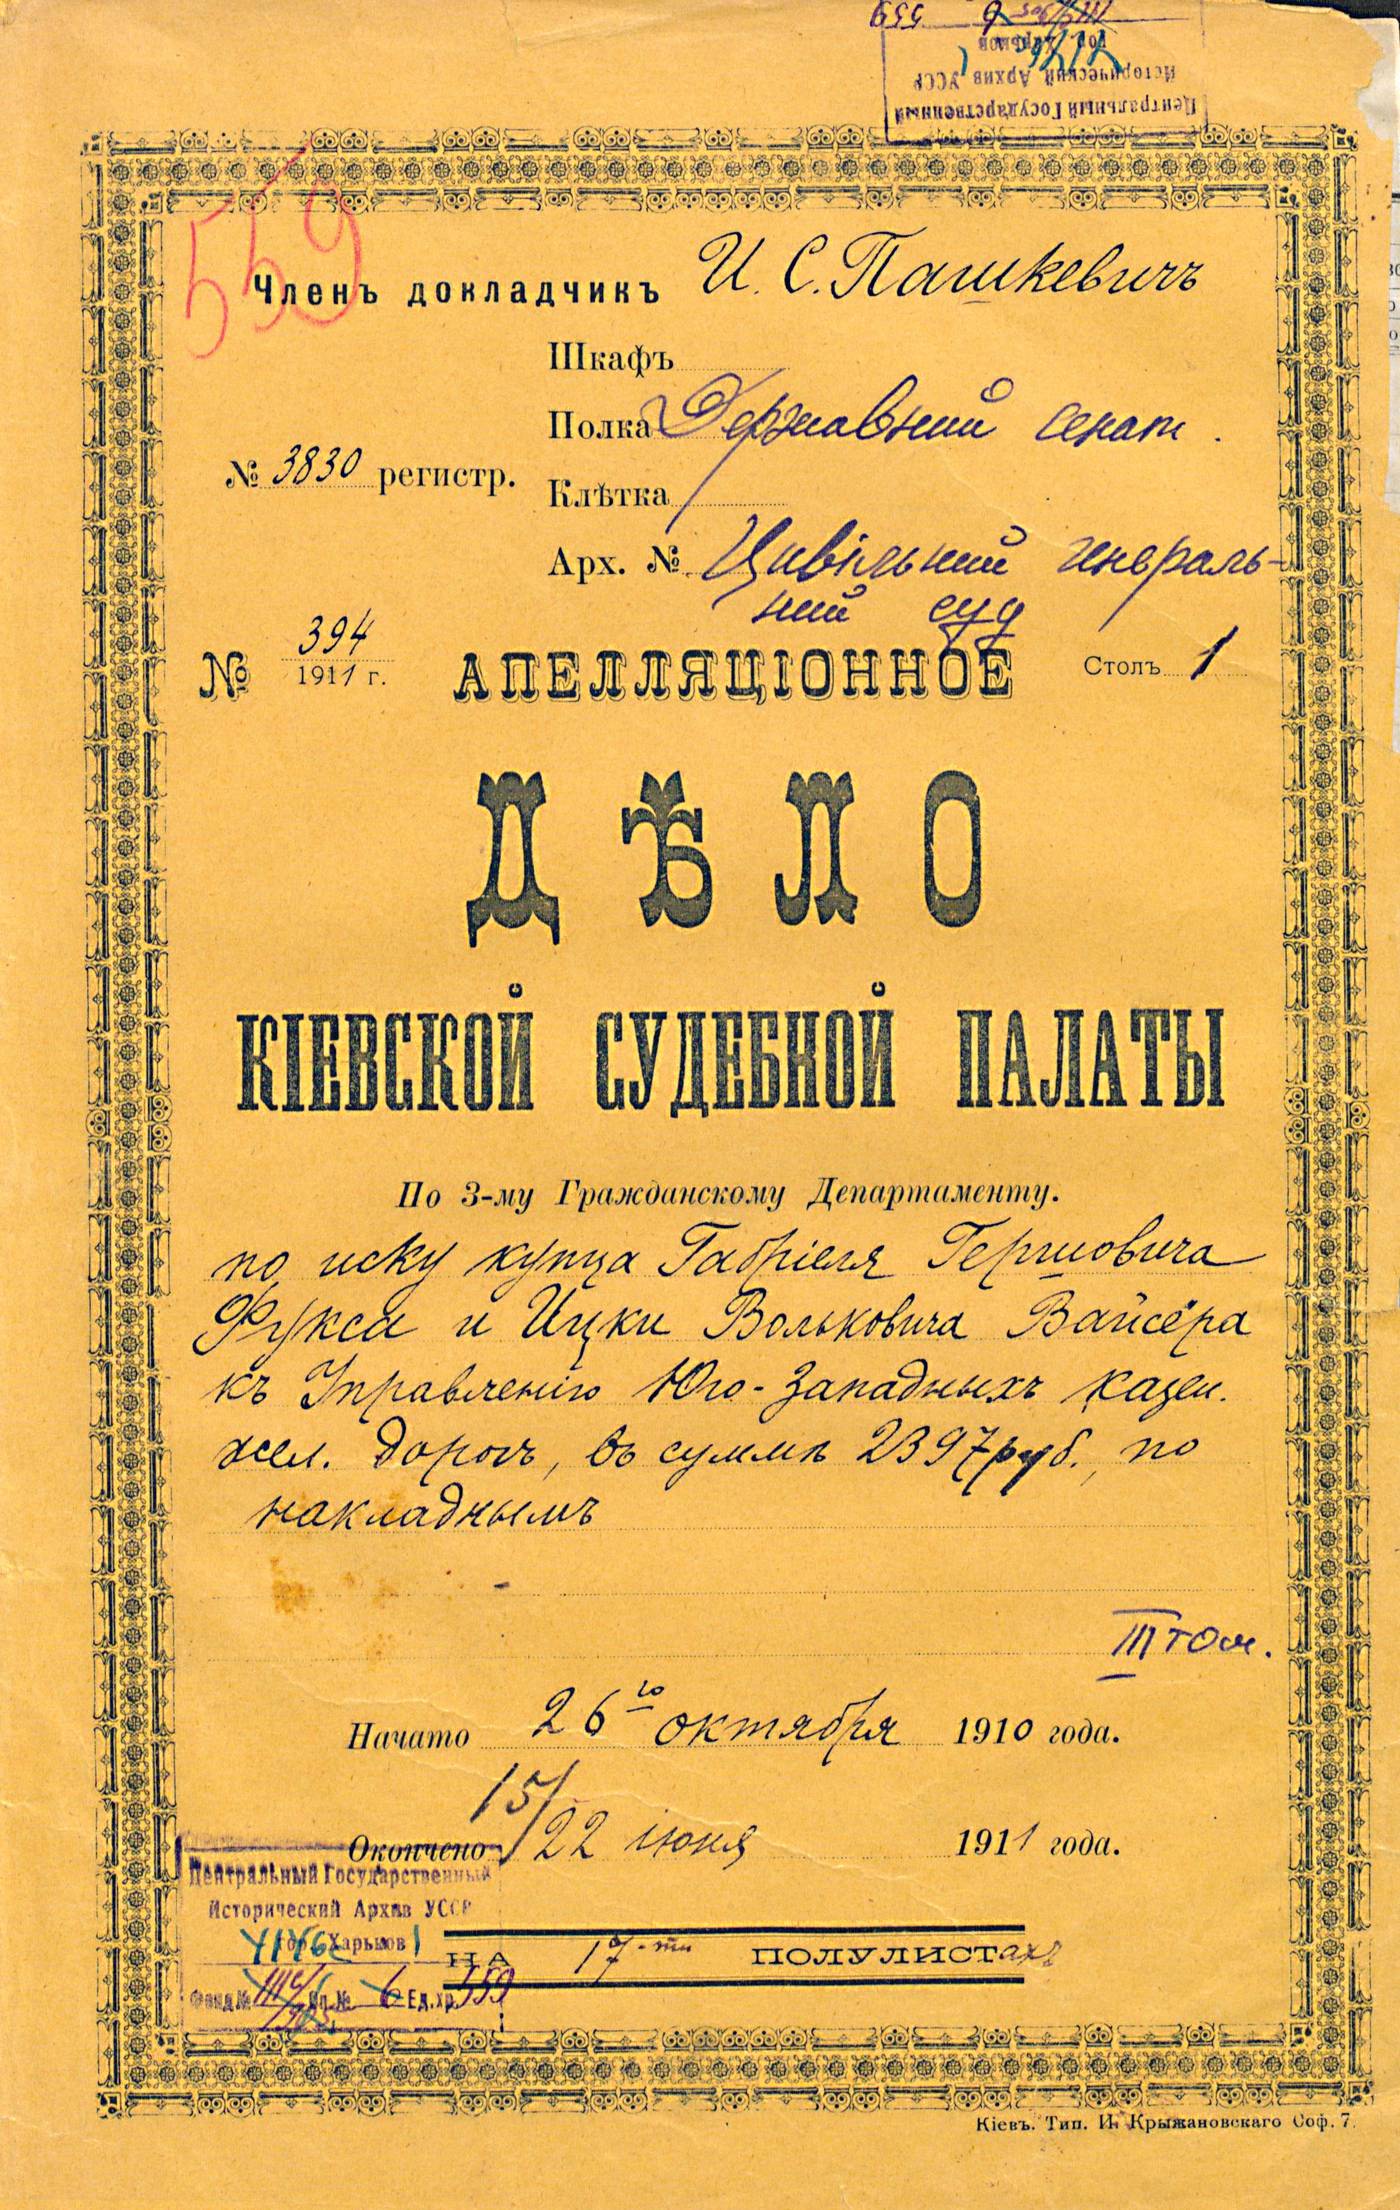 559
Центральный Государственный
Исторический Архив УССР
гор. Харьков
6 559
559
Членъ докладчикъ И. С. Пашкевичъ
Шкафъ
Полка Державний сенат.
№ 3830 регистр.
Клѣтка
Арх. № Цивільний генераль-
ний суд
№ 394
1911 г.
АПЕЛЛЯЦІОННОЕ
Столъ 1
ДѢЛО
КІЕВСКОЙ СУДЕБНОЙ ПАЛАТЫ
По 3-му Гражданскому Департаменту.
по иску купца Габріеля Гершовича
Фукса и Ицки Вольковича Вайсёра
къ Управленію Юго-Западныхъ казен.
жел. дорогъ, въ суммѣ 2397 руб., по
накладнымъ
III том.
Начато 26го октября 1910 года.
15/22 іюня
Окончено 1911 года.
Центральный Государственный
Исторический Архив УССР
гор. Харьков
Фонд № Оп. № 6 Ед. хр. 559
НА 17-ти ПОЛУЛИСТахъ
Кіевъ. Тип. И. Крыжановскаго Соф. 7.